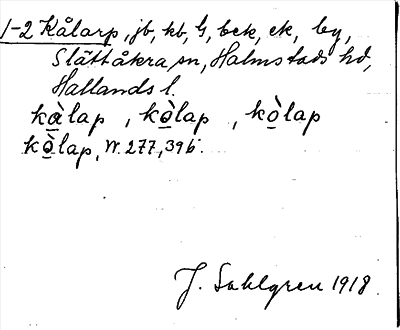 1-2 Kålarp, jb, kb, G, bek, ek, by,
Slättåkra sn, Halmstads hd,
Hallands l.
kàlap, kòlap, kòlap
kòlap, W. 277, 396.
J. Sahlgren 1918